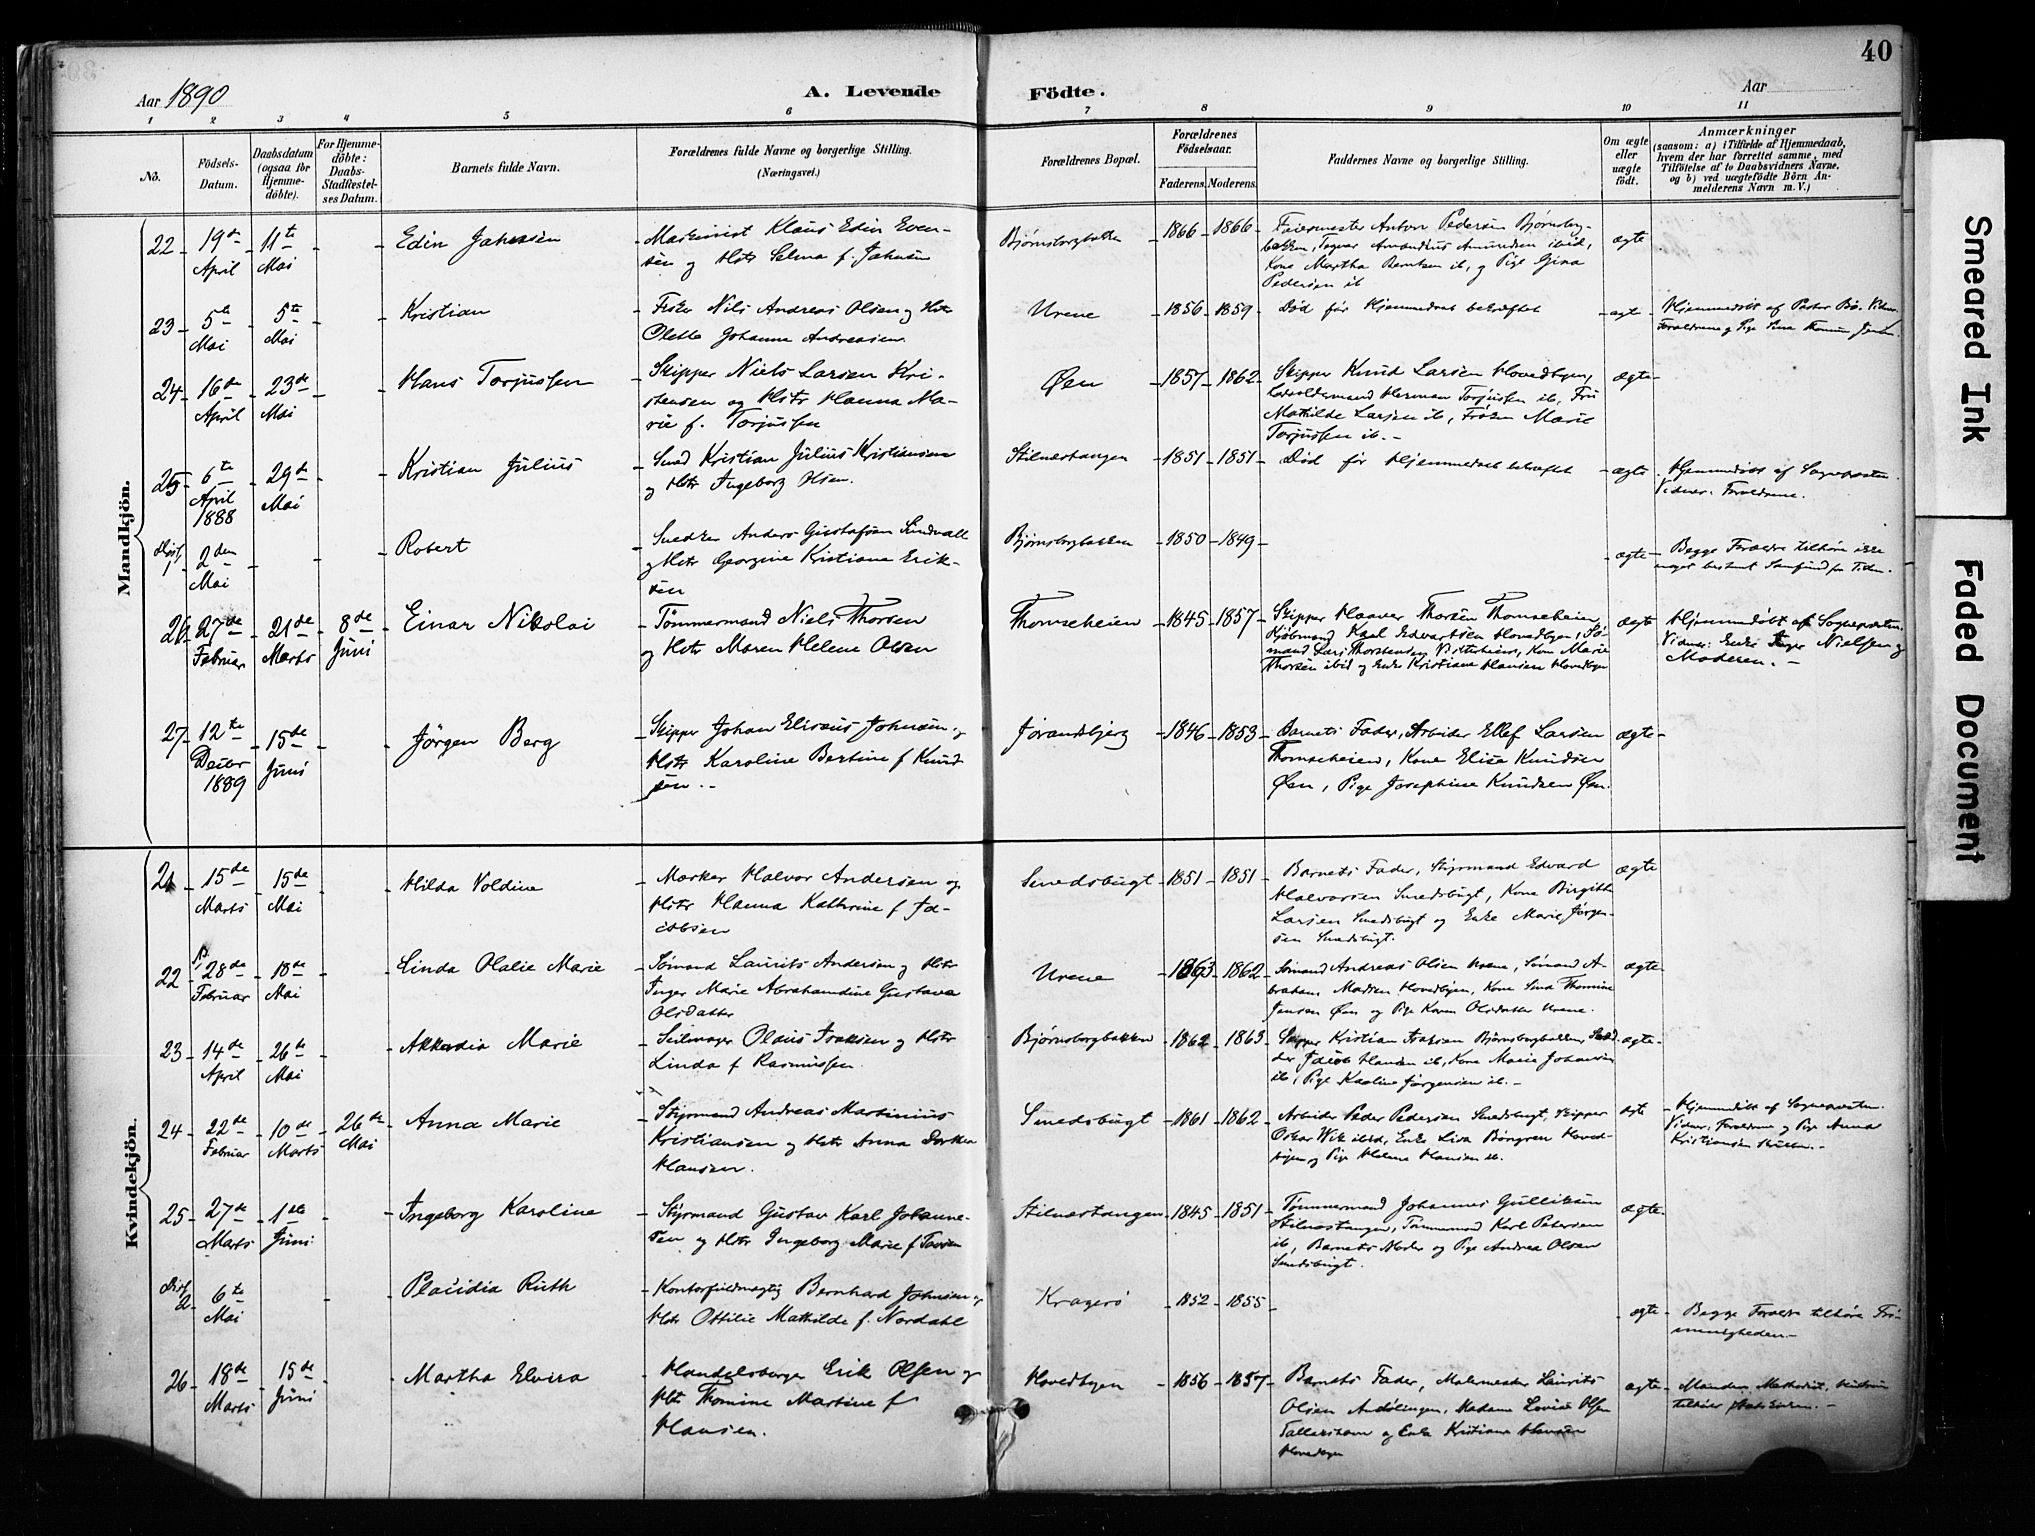 40
Aar 1890
A. Levende
Födte.
Aar
1 2 3 4 5 6 7 8 9 10 11
No.
Födsels-
Datum.
Daabsdatum
(ogsaa for
Hjemme-
döbte).
For Hjemme-
döbte:
Daabs-
Stadfæstel-
ses Datum.
Barnets fulde Navn.
Forældrenes fulde Navne og borgerlige Stilling.
(Næringsvei.)
Forældrenes Bopæl.
Forældrenes
Födselsaar.
Faderens. Moderens.
Faddernes Navne og borgerlige Stilling.
Om ægte
eller
uægte
födt.
Anmærkninger
(saasom: a) i Tilfælde af Hjemmedaab,
hvem der har forrettet samme, med
Tilföielse af to Daabsvidners Navne,
og b) ved uægtefödte Börn An-
melderens Navn m. V.)
Mandkjön.
22 19de April 11te Mai Edin Johnsen
Maskinist Klaus Edin Even-
sen og Hstr Selma f. Johnsen
Bjørnsborgbakken 1866 1866
Feiermester Anton Pedersen Bjørnsborg-
bakken, Amandus Amundsen ibid,
Kone Martha Berntsen ib, og Pige Gina
Pedersen ib
ægte
23 5te Mai 5te Mai Kristian
Fisker Nils Andreas Olsen og Hstr
Olette Johanne Andreasen.
Urene 1856 1859
Død før Hjemmedaab bekræftet
ægte
Hjemmedøbt af Pastor Bø. Vidner
Forældrene og Pige
24 16de April 23de Mai Hans Torjussen
Skipper Niels Larsen Kri-
stensen og Hstr Hanna Ma-
rie f. Torjussen
Øen 1857 1862
Skipper Knud Larsen Hovedbyen,
Herman Torjussen ib, Frü
Mathilde Larsen ib, Frøken Marie
Torjussen ib.-
ægte
25 6te April 1888 29de Mai Kristian Julius
Smed Kristian Julius Kristiansen
og Hstr Ingeborg Olsen.
Stilnæstangen 1851 1851
Død før Hjemmedaab bekræftet
ægte
Hjemmedøbt af Sognepræsten.
Vidner: Forældrene.
1 2den Mai Robert
Snedker Anders Gustafsen
og Hstr Georgine Kristiane Erik-
sen
Bjørnsborgbakken 1850 1849
ægte
Begge Forældre tilhøre ikke
noget bestemt Samfund for Tiden.
26 27de Februar 21de Marts 8de Juni Einar Nikolai
Tømmermand Niels Thorsen
og Hstr Maren Helene Olsen
Thomseheien 1845 1857
Skipper Haaver Thorsen Thomseheien,
Kjøbmand Karl Edvartsen Hovedbyen, Sø-
mand Lars Thorstensen, Kone Marie
Thorsen ibid og Enke Kristiane Hansen Hovedbyen
ægte
Hjemmedøbt af Sognepræsten.
Vidner: Enke Nielsen og
Moderen.-
27 12te Decbr 1889 15de Juni Jörgen Berg
Skipper Johan Elisæus Johnsen og
Hstr Karoline Bertine f Knud-
sen.-
Jorandsbjerg 1846 1853
Barnets Fader, Arbeider Ellef Larsen
Thomseheien, Kone Elise Knudsen
Øen, Pige Josephine Knudsen Øen.
ægte
Kvindekjön.
21 15de Marts 15de Mai Hilda Voldine
Mærker Halvor Andersen og
Hstr Hanna Kathrine f Ja-
cobsen
Smedsbugt 1851 1851
Barnets Fader, Styrmand Edvard
Halvorsen Smedsbugt, Kone Birgitte
Larsen Smedsbugt og Enke Marie Jørgen-
sen Smedsbugt.
ægte
22 28de Februar 18de Mai Linda Olalie Marie
Sømand Laurits Andersen og Hstr
Inger Marie Abrahamdine Gustava
Olsdatter
Urene 1863 1862
Sømand Andreas Olsen Urene, Sømand A-
braham Madsen Hovedbyen, Kone Sina Thomine
Jensen Øen og Pige Karen Olsdatter Urene.
ægte
23 14de April 26te Mai Akkedia Marie
Seilmager Olaus Isaksen og Hstr
Linda f Rasmussen.
Bjørnsborgbakken 1862 1863
Skipper Kristian Isaksen Bjørnsborgbakken,
Jacob Hansen ib, Kone Marie Johansen
ib, Pige Karoline Jørgensen ib.-
ægte
24 22de Februar 10de Marts 26de Mai Anna Marie
Styrmand Andreas Martinius
Kristiansen og Hstr Anna Dorthea
Hansen.
Smedsbugt 1861 1862
Arbeider Peder Pedersen Smedsbugt, Skipper
Oskar Wik ibid, Enke Lisa Børgren Hoved-
byen og Pige Helene Hansen ib.
ægte
Hjemmedøbt af Sognepræsten.
Vidner: Forældrene og Pige Anna
Kristiansen
25 27de Marts 1ste Juni Ingeborg Karoline
Styrmand Gustav Karl Johanne-
sen og Hstr Ingeborg Marie f
Stilnæstangen 1845 1851
Tømmermand Johannes Gulliksen
Stilnæstangen, Tømmermand Karl Petersen
ib, Barnets Moder og Pige Andrea Olsen
Smedsbugt.
ægte
2 6te Mai Placidia Ruth
Kontorfuldmægtig Bernhard Johnsen og
Hstr Ottilie Mathilde f. Nordahl
Kragerö 1852 1855
ægte
Begge Forældre tilhøre Fri-
menigheden.-
26 18de Marts 15de Juni Martha Elvira
Handelsborger Erik Olsen og
Hstr Thomine Martine f
Hansen.
Hovedbyen 1856 1857
Barnets Fader, Malermester Laurits
Olsen, Madame Lovise Olsen
og Enke Kristiane Hansen
Hovedbyen
ægte
Manden Methodist, Hustruen
tilhører Statskirken.-
Smeared Ink
Faded Document